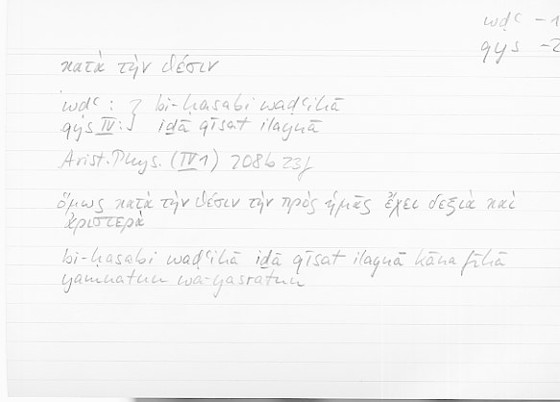 wḍʿ – 1
qys – 2
κατὰ τὴν θέσιν
wḍʿ : } bi-ḥasabi waḍʿihā
qys IV : } iḏā qīsat ilaynā
Arist. Phys. (IV 1) 208b 23f
ὅμως κατὰ τὴν θέσιν τὴν πρὸς ἡμᾶς ἔχει δεξιὰ καὶ
ἀριστερὰ
bi-ḥasabi waḍʿihā iḏā qīsat ilaynā kāna fīhā
yamnatun wa-yasratun